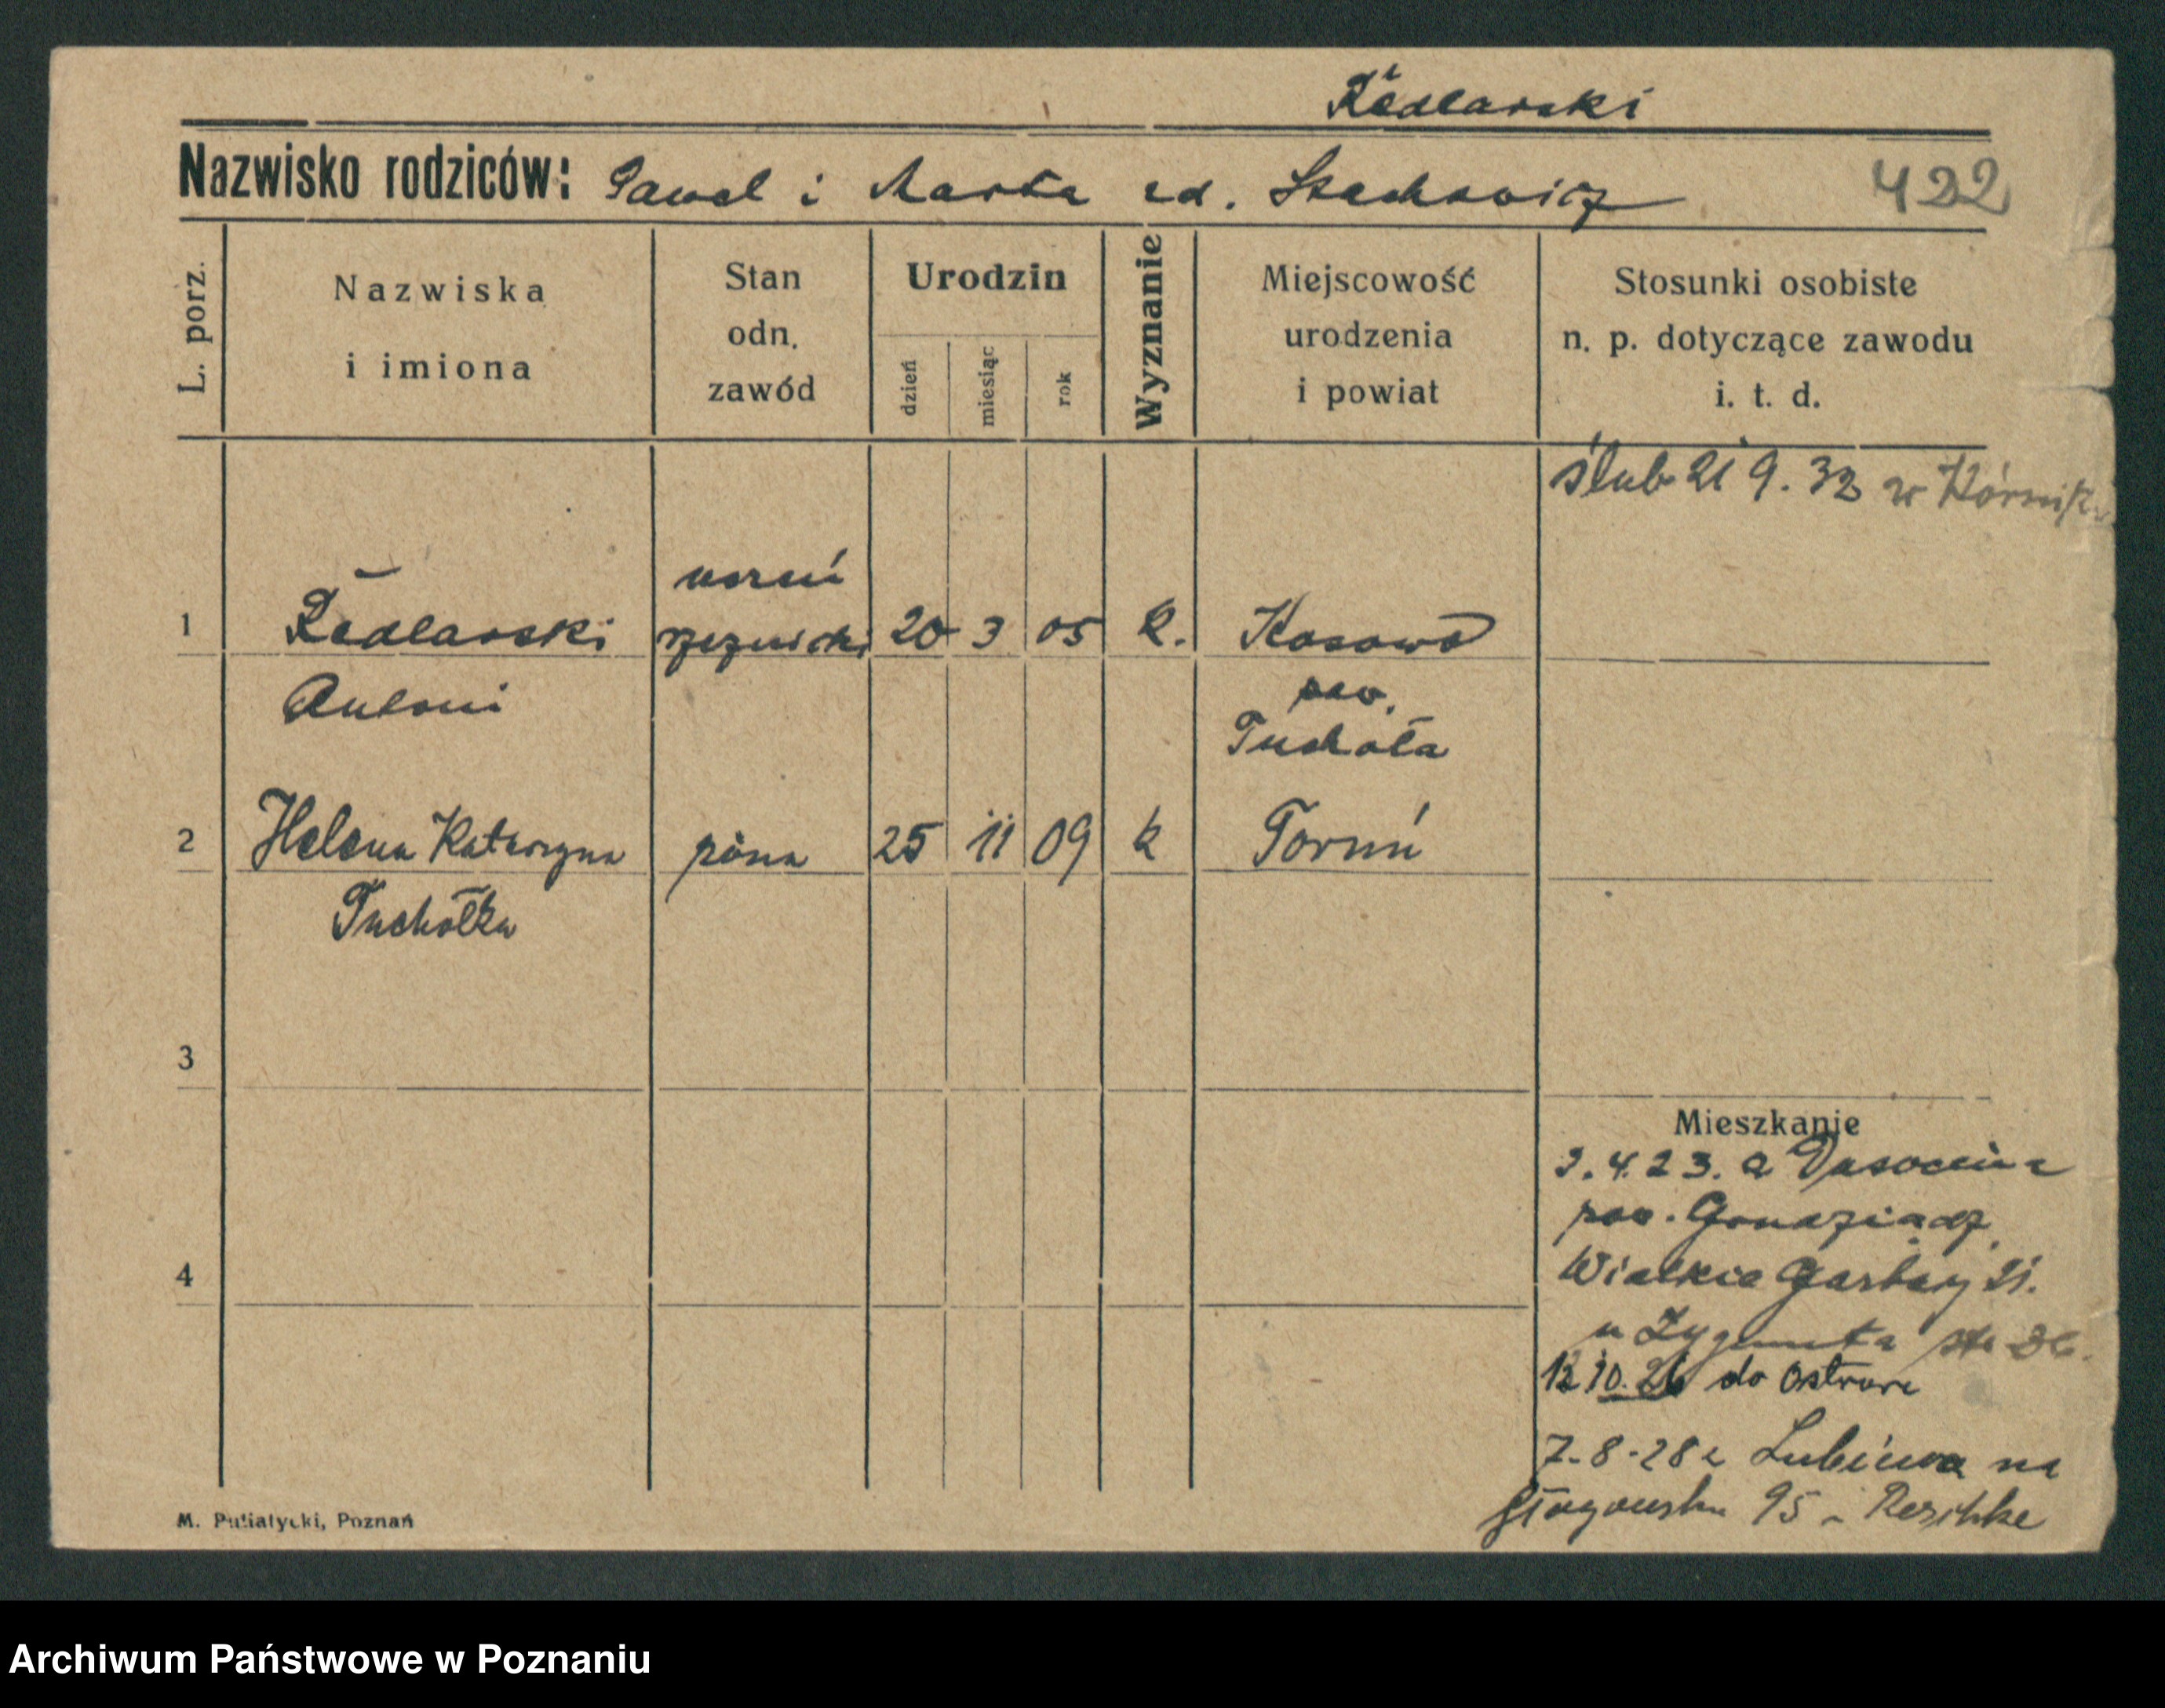 Kedlarski
Nazwisko rodziców: Pawel i Marta zd. Stachowicz 422
L. porz.
Nazwiska
i imiona
Stan
odn.
zawód
Urodzin
dzień
miesiąc
rok
Wyznanie
Miejscowość
urodzenia
i powiat
Stosunki osobiste
n. p. dotyczące zawodu
i. t. d.
ślub 21 9. 32 w Kórnik
1 Kedlarski uczeń rzeznicki 20 3 05 k. Kosowo
Antoni pow. Tuchola
2 Helena Katarzyna żona 25 11 09 k Toruń
Tuchółka
3
4
Mieszkanie
3.4.23. z
pow. Grudziądz
Wielkie Garbary 21.
u Zygmunta
12 10. 26 do Ostrowa
7-8-28 z Lubinia na
Głogowska 95
M. Putiatycki, Poznań
Archiwum Państwowe w Poznaniu